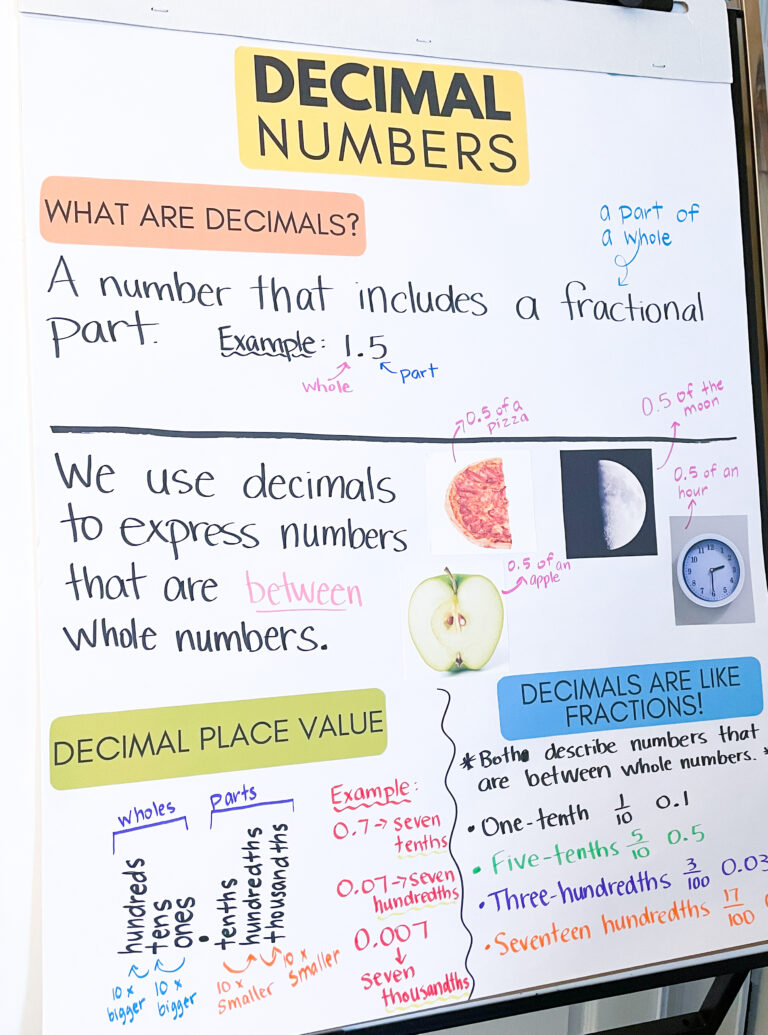 DECIMAL
NUMBERS
WHAT ARE DECIMALS?
a part of
a whole
A number that includes a fractional
part. Example: 1.5
whole
part
We use decimals
to express numbers
that are between
whole numbers.
0.5 of a
pizza
0.5 of the
moon
0.5 of an
hour
0.5 of an
apple
DECIMAL PLACE VALUE
wholes
parts
hundreds
tens
ones
.
tenths
hundredths
thousandths
10 x
bigger
10 x
bigger
10 x
smaller
10 x
smaller
Example:
0.7 → seven
tenths
0.07 → seven
hundredths
0.007
↓
seven
thousandths
DECIMALS ARE LIKE
FRACTIONS!
*Both describe numbers that
are between whole numbers. *
• One-tenth 1/10 0.1
• Five-tenths 5/10 0.5
• Three-hundredths 3/100 0.03
• Seventeen hundredths 17/100